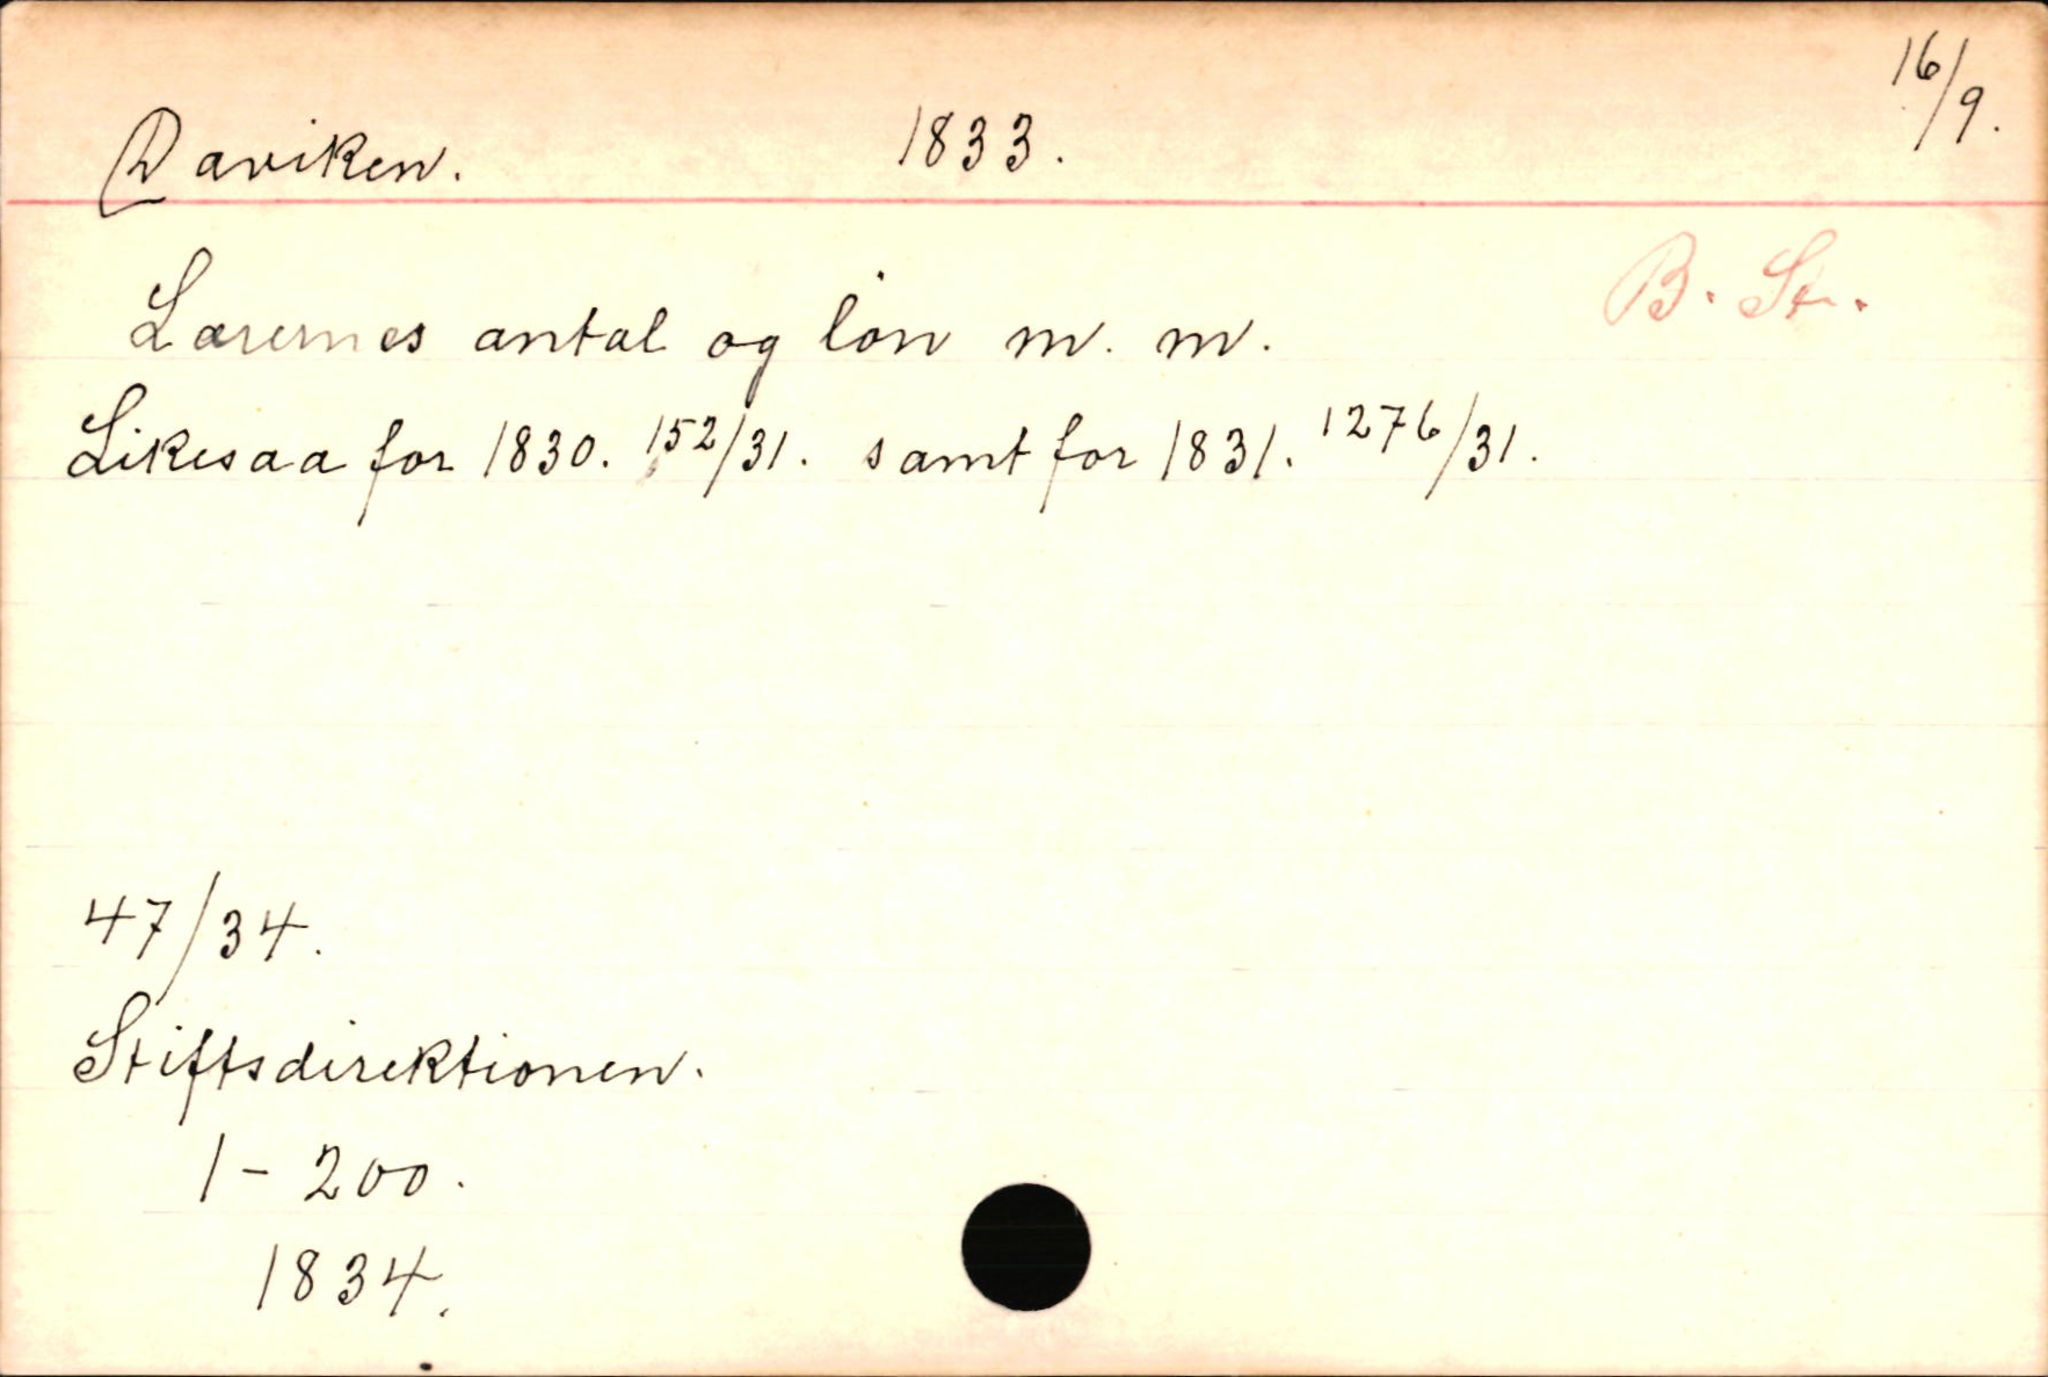 16/9.
Daviken. 1833.
B. St.
Lærernes antal og løn m. m.
Likesaa for 1830. 152/31. samt for 1831. 1276/31.
47/34.
Stiftsdirektionen.
1 - 200.
1834.